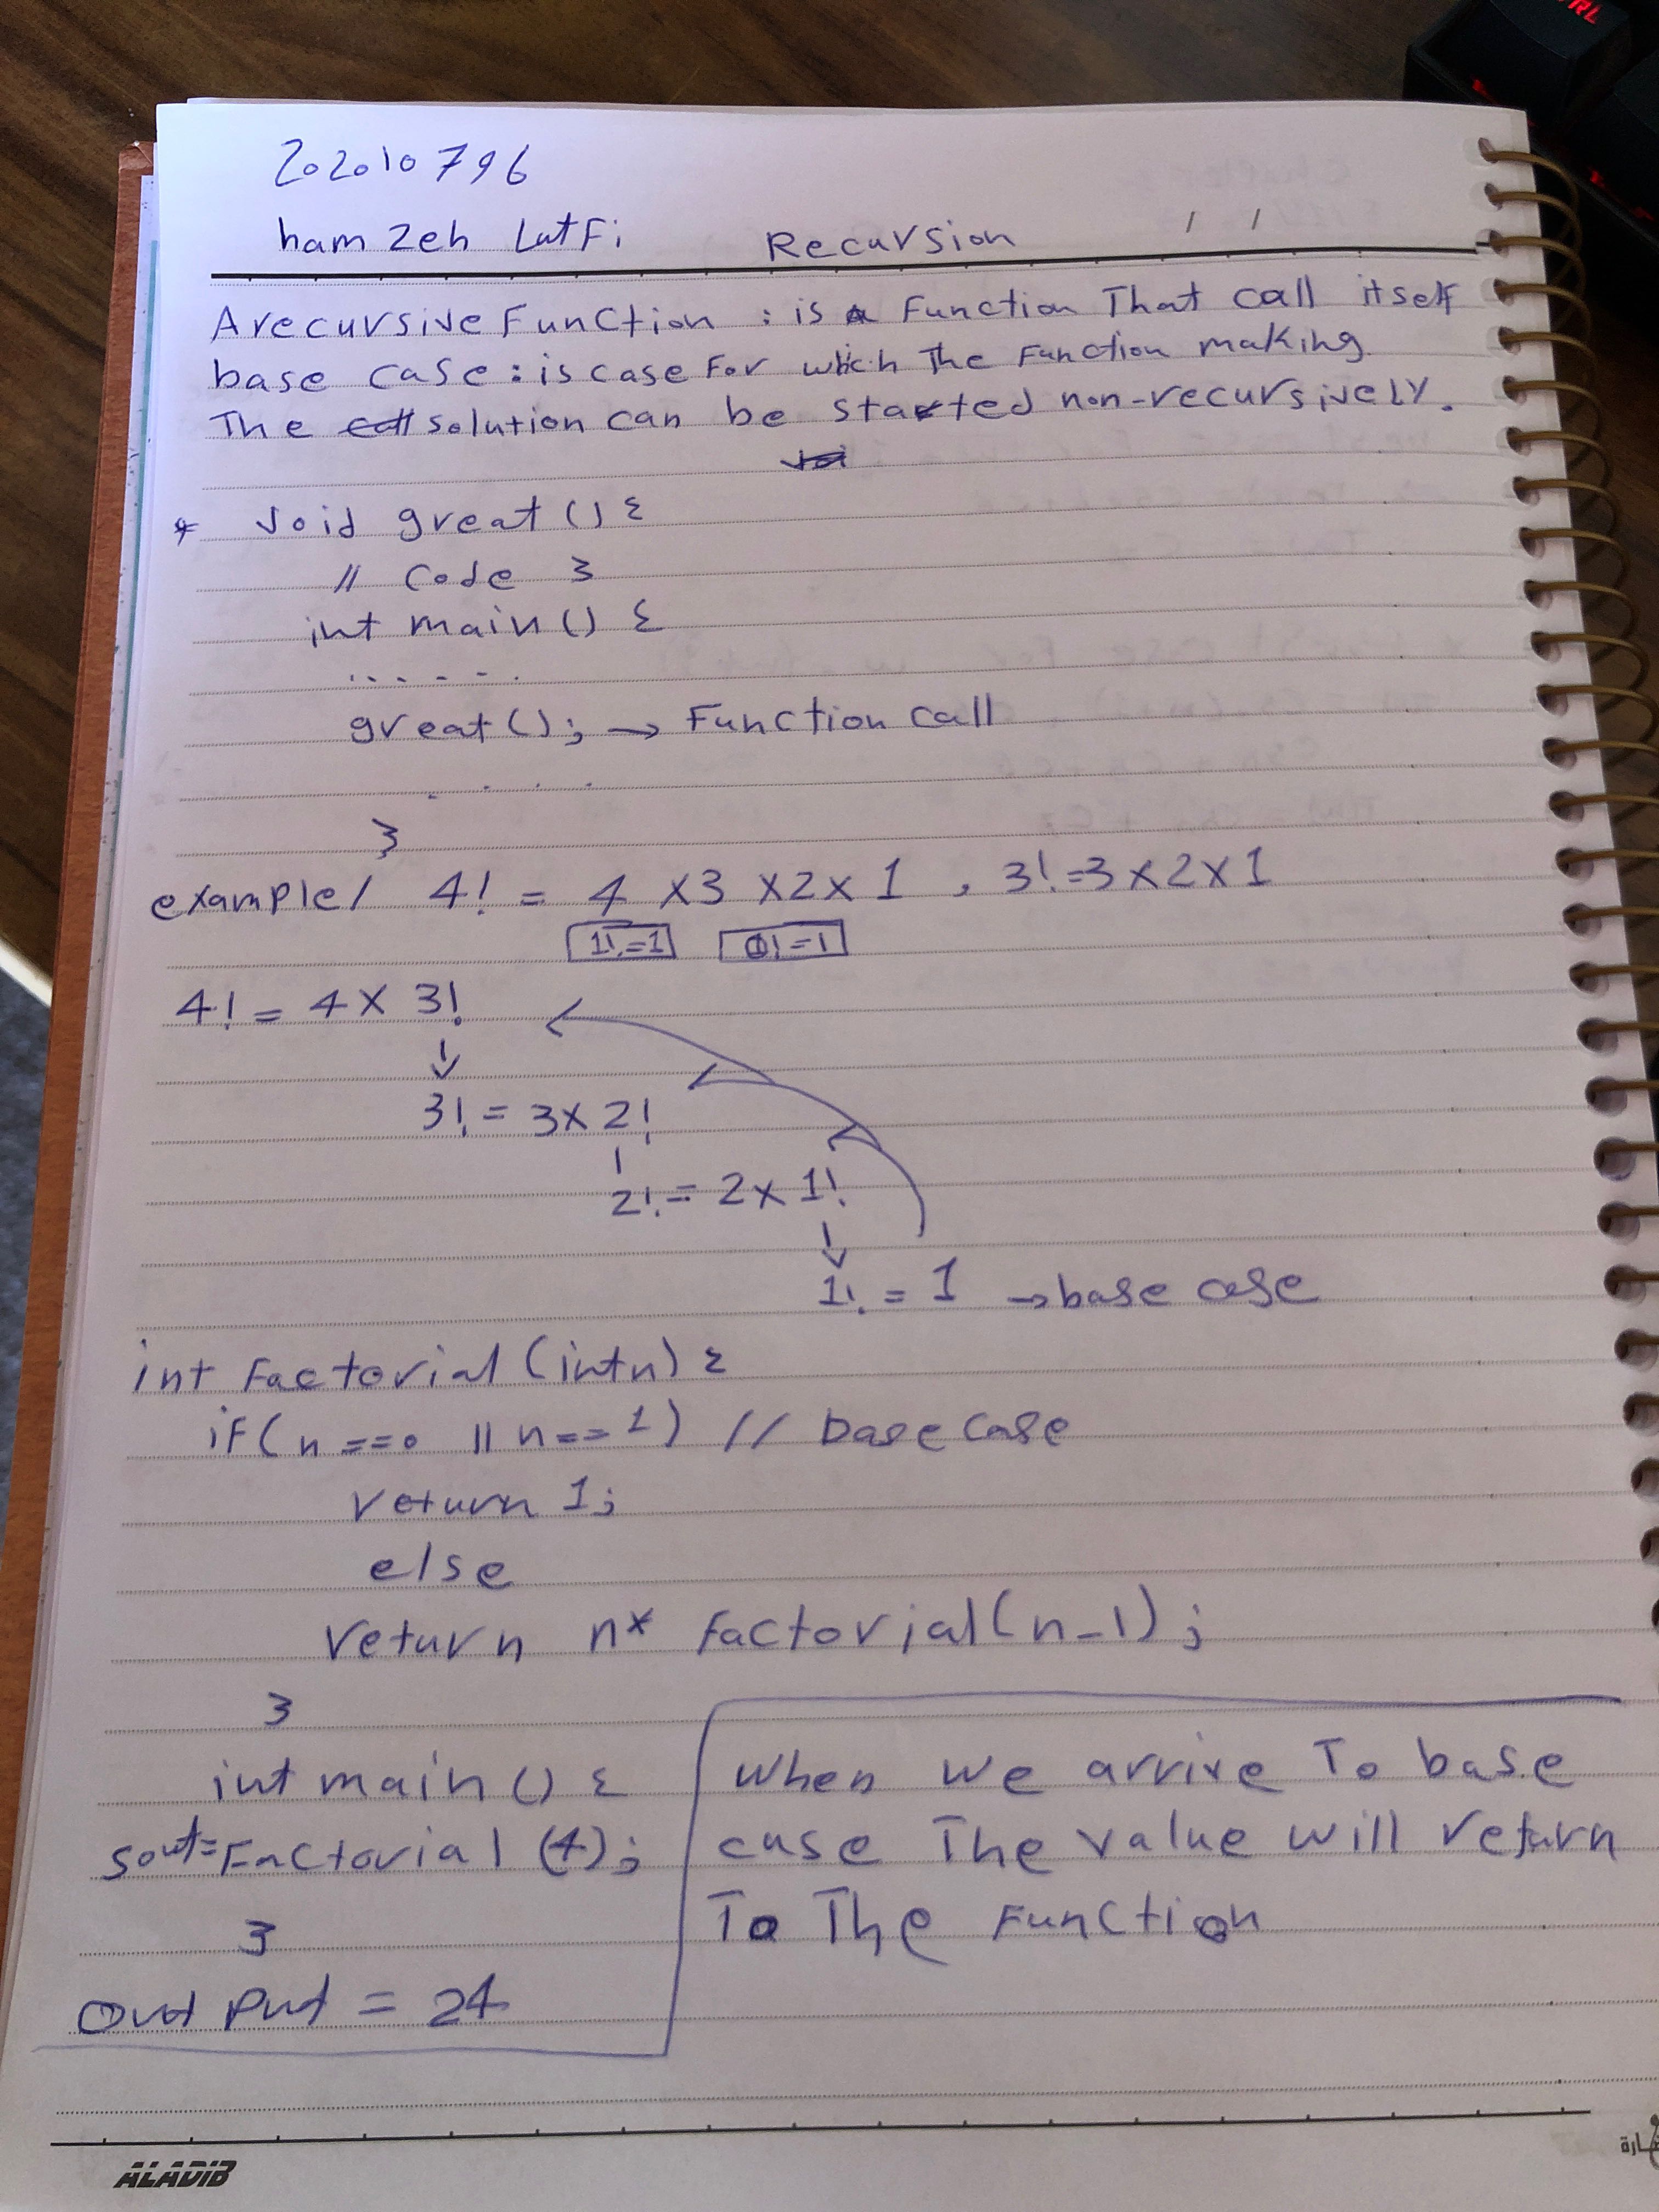 202010796
hamzeh Lutfi Recursion / /
A recursive Function : is a Function That call itself
base case : is case For which The Function making
The solution can be started non-recursively.
* void great () {
// Code }
int main () {
......
great(); → Function call
. . . .
}
example/ 4! = 4 x3 x2x 1 , 3! =3x2x1
1! =1 0! =1
4! = 4 x 3!
↓
3! = 3x 2!
2! = 2x 1!
↓
1! = 1 → base case
int Factorial (int n) {
if( n ==0 || n==1 ) // base case
return 1;
else
return n* factorial(n-1);
}
int main () {
sout=Factorial (4);
}
out put = 24
When we arrive To base
case The value will return
To The Function
ALADIB